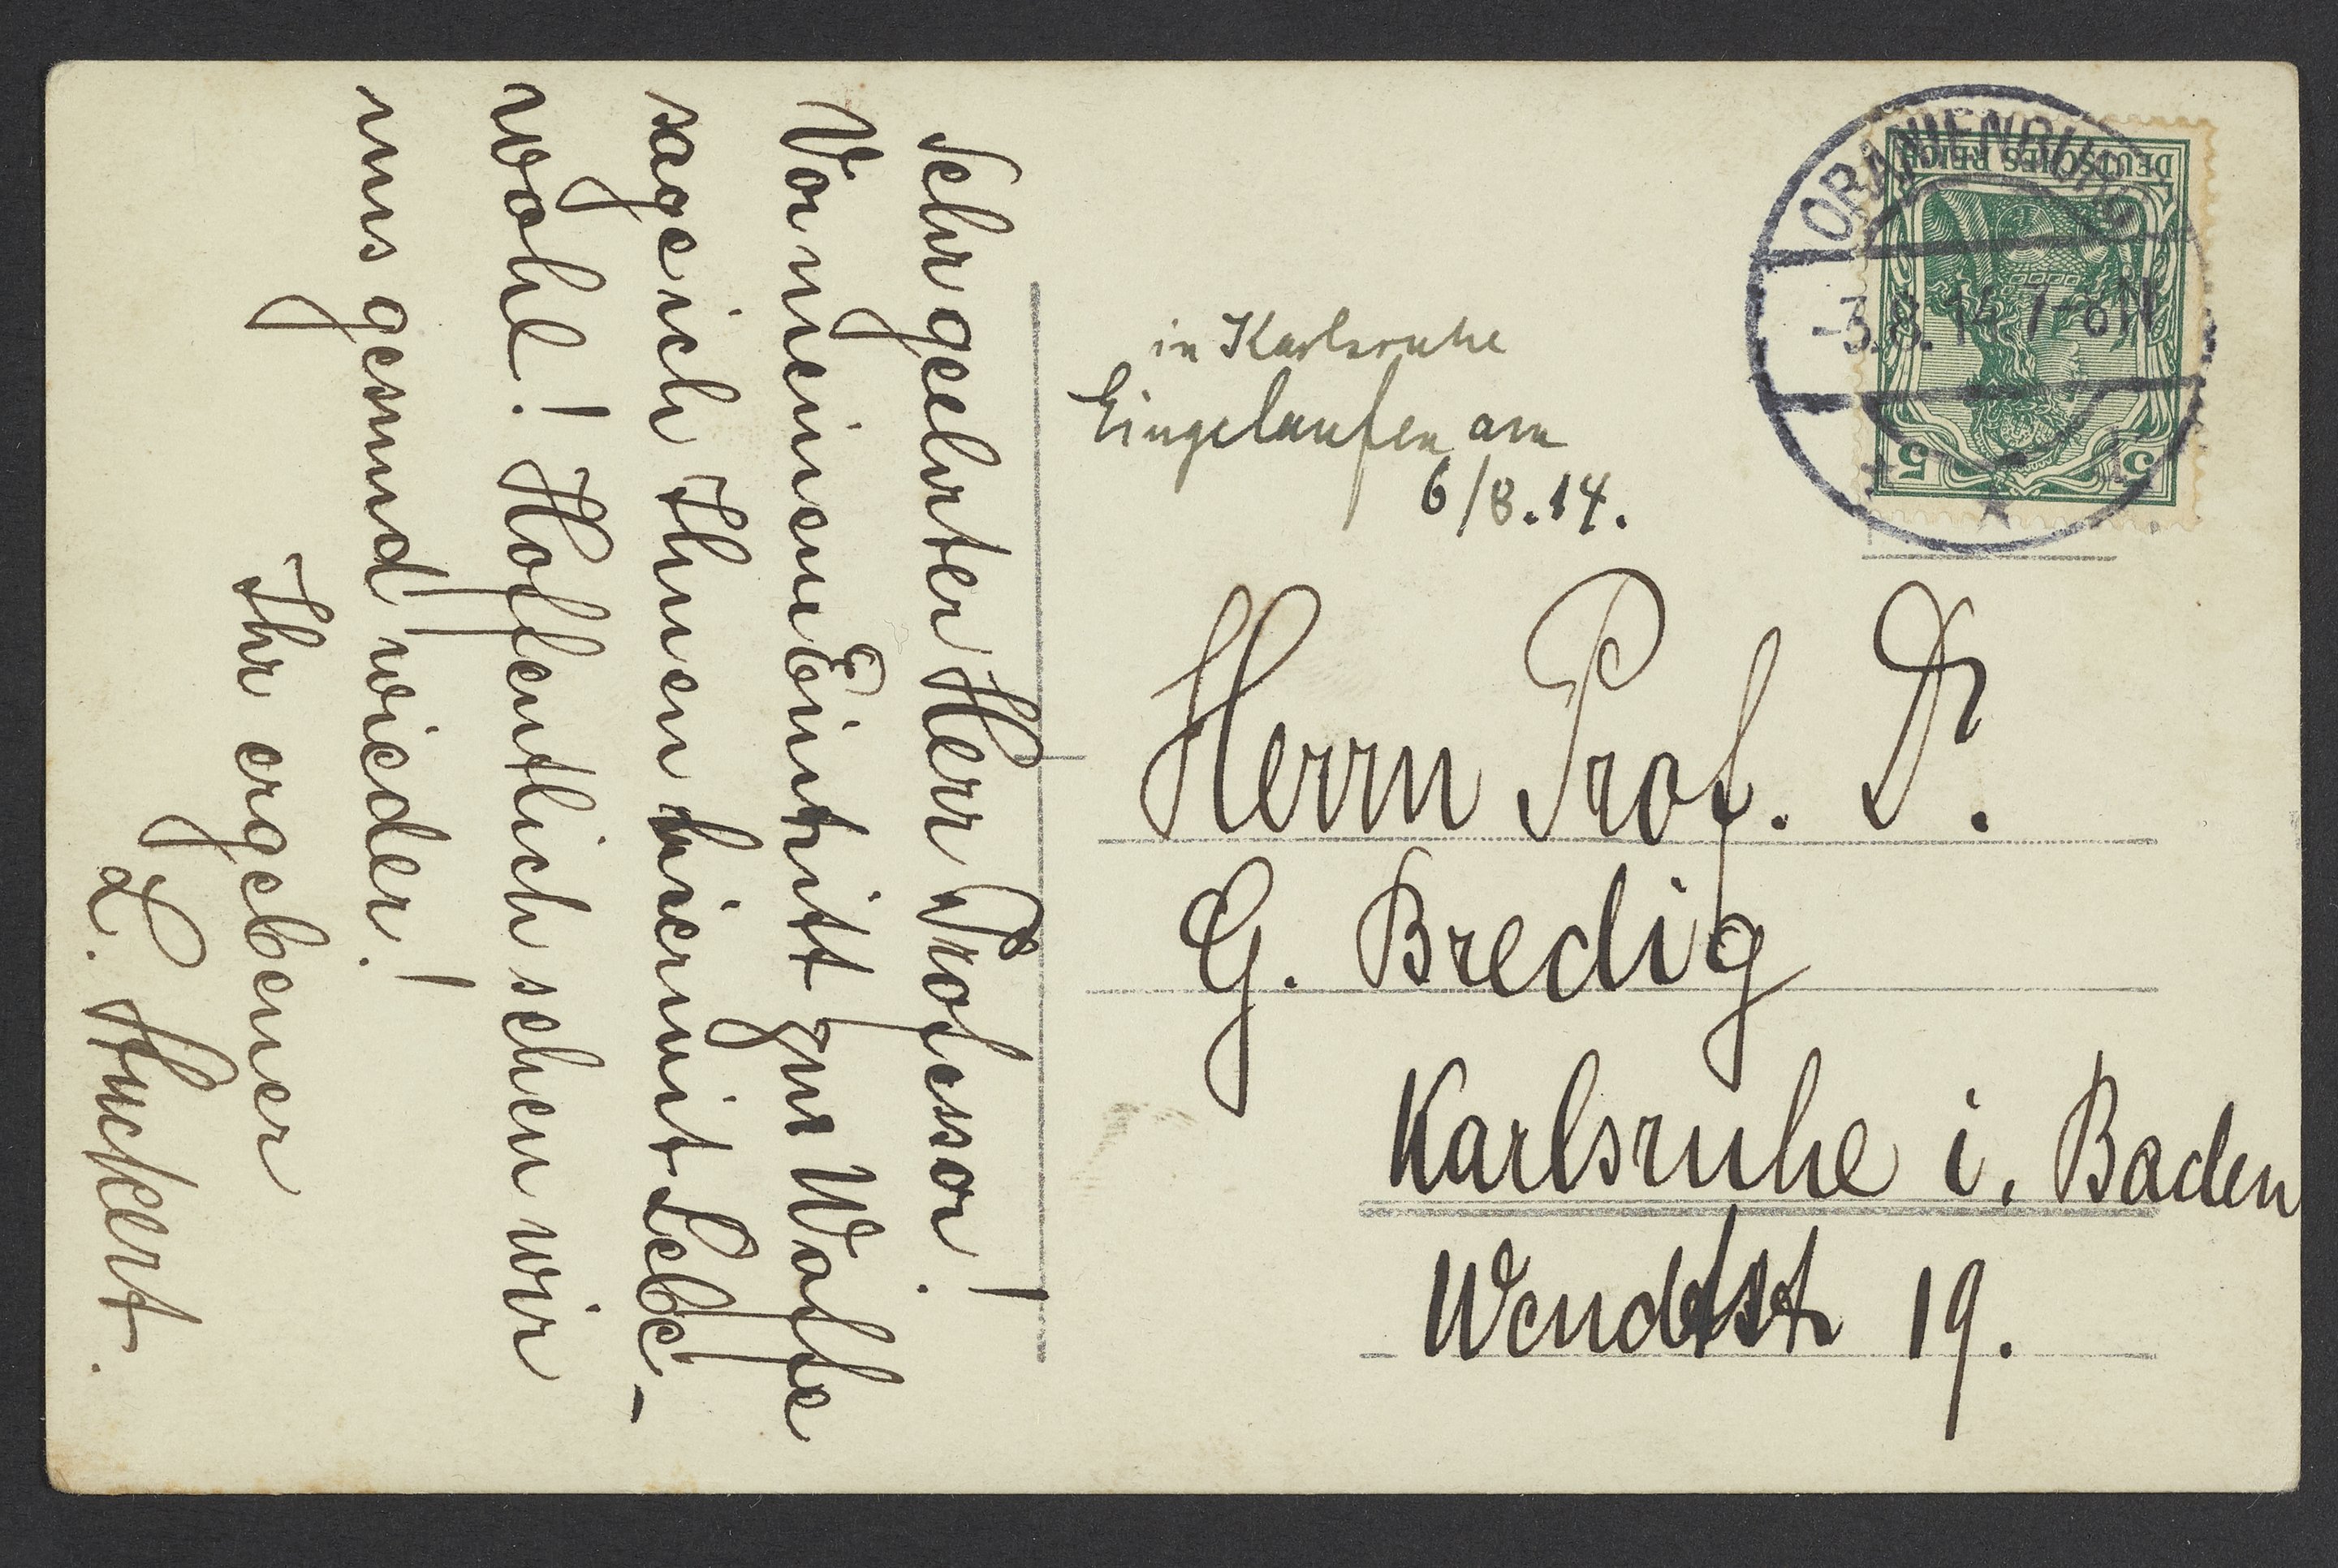 Sehr geehrter Herr Professor!
Vor meinem Eintritt zur Waffe
sage ich Ihnen hiermit Lebe-
wohl! Hoffentlich sehen wir
uns gesund wieder!
Ihr ergebener
L. Huckert.
ORANIENBURG
-3.8.14.7-8N
DEUTSCHES REICH
5 5
in Karlsruhe
Eingelaufen am
6/8.14.
Herrn Prof. Dr.
G. Bredig
Karlsruhe i. Baden
19.